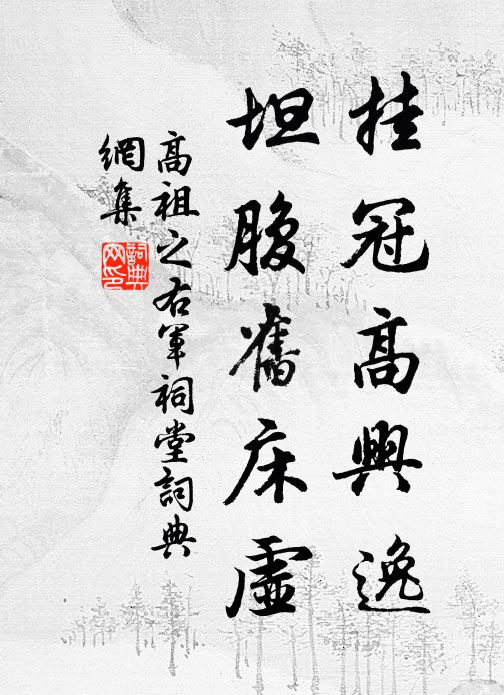 挂冠高興逸
坦腹舊床虛
高祖之右軍祠堂詞典
網集
詞典
网印